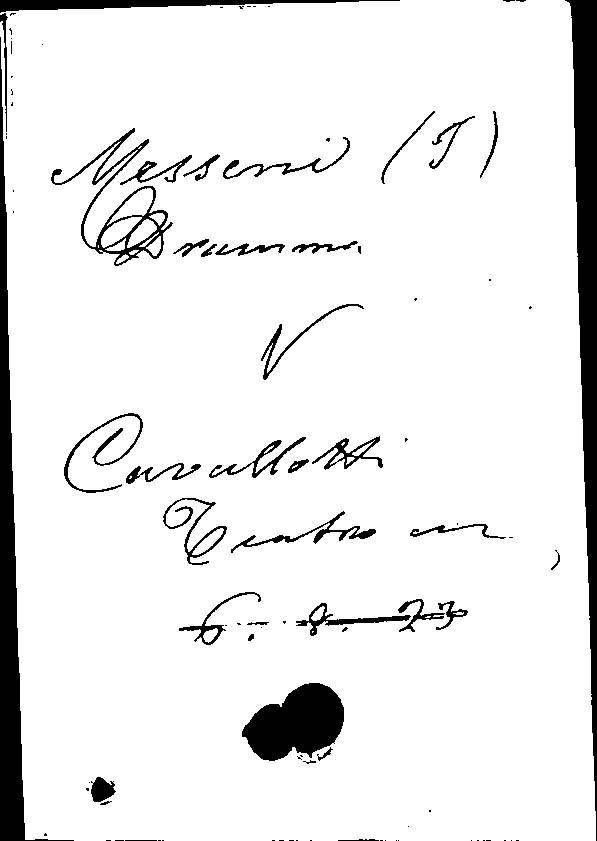 Messeni (I)
Dramma
V
Cavallotti
Teatro ecc
6. 8. 23